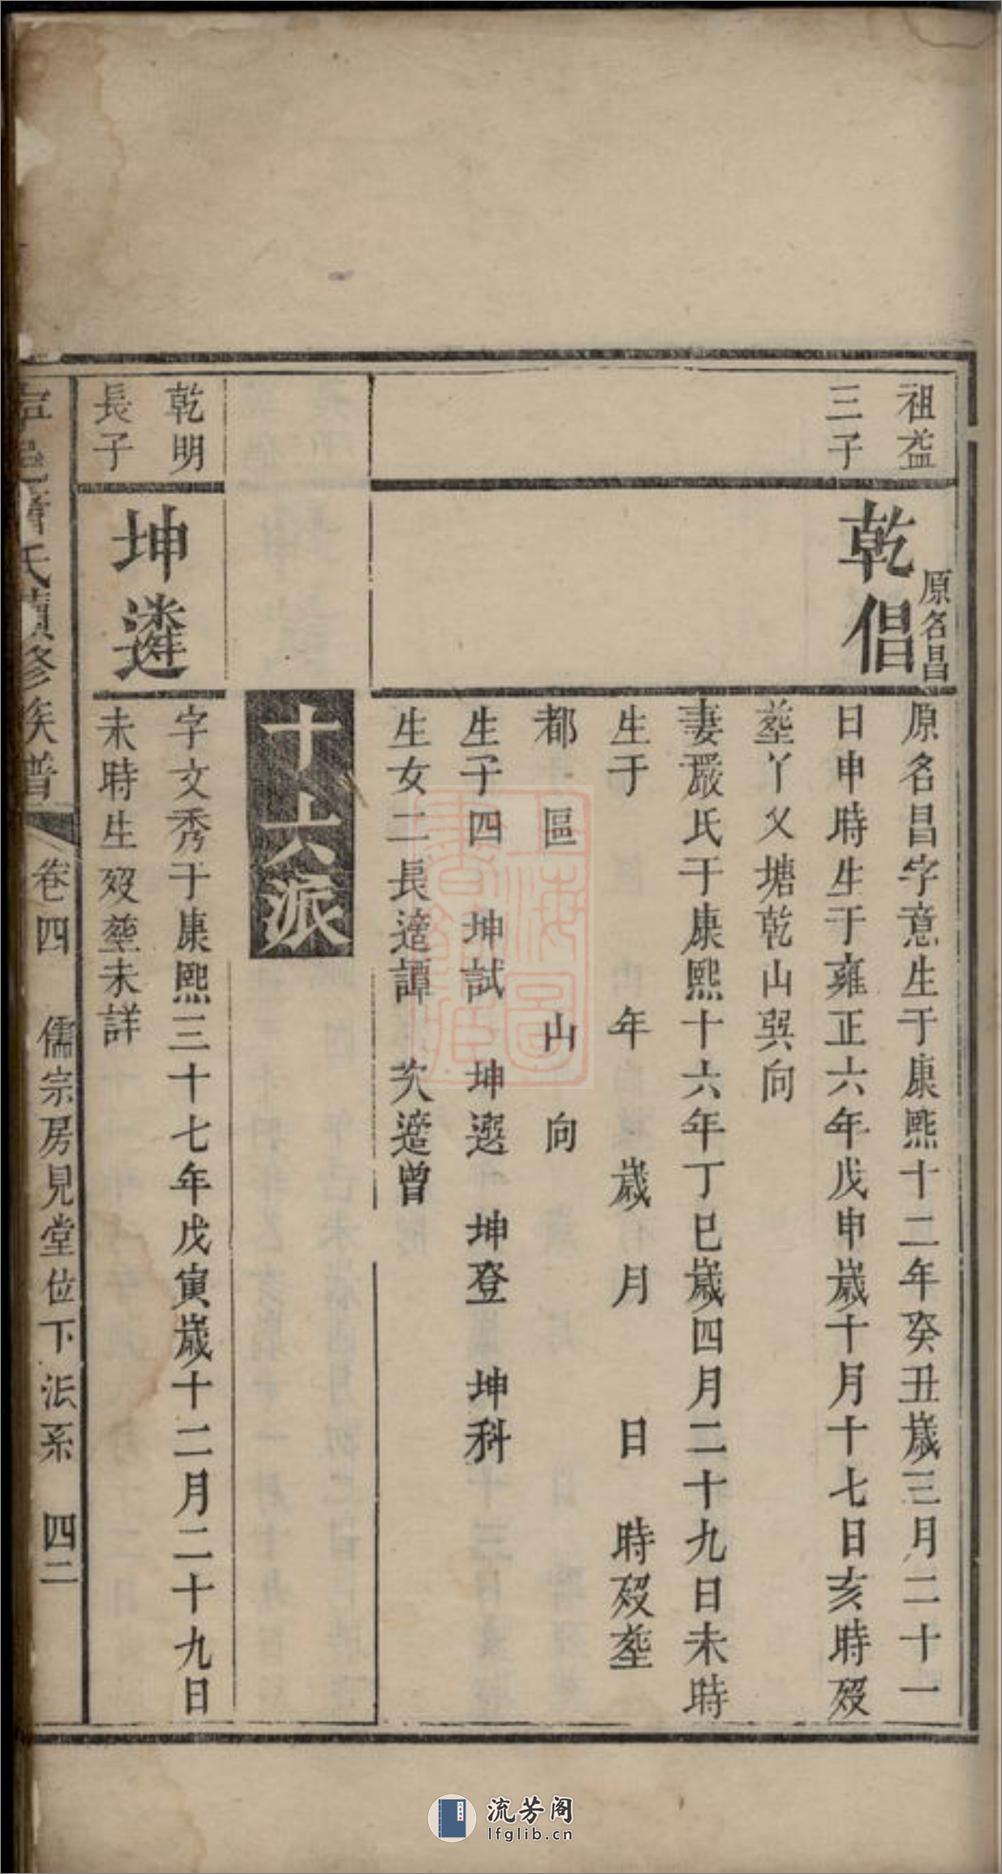 祖益
三子
乾倡
原名昌
原名昌字意生于康熙十二年癸丑歲三月二十一
日申時生于雍正六年戊申歲十月十七日亥時歿
塟丫乂塘乾山巽向
妻嚴氏于康熙十六年丁巳歲四月二十九日未時
生于 年 歲 月 日 時歿塟
都 區 山 向
生子四 坤試 坤選 坤登 坤科
生女二長適譚 次適曾
十六派
乾明
長子
坤遴
字文秀于康熙三十七年戊寅歲十二月二十九日
未時生歿塟未詳
氏續修族譜 卷四 儒宗房見堂位下派系 四二
上海圖書館藏
流芳阁
lfglib.cn